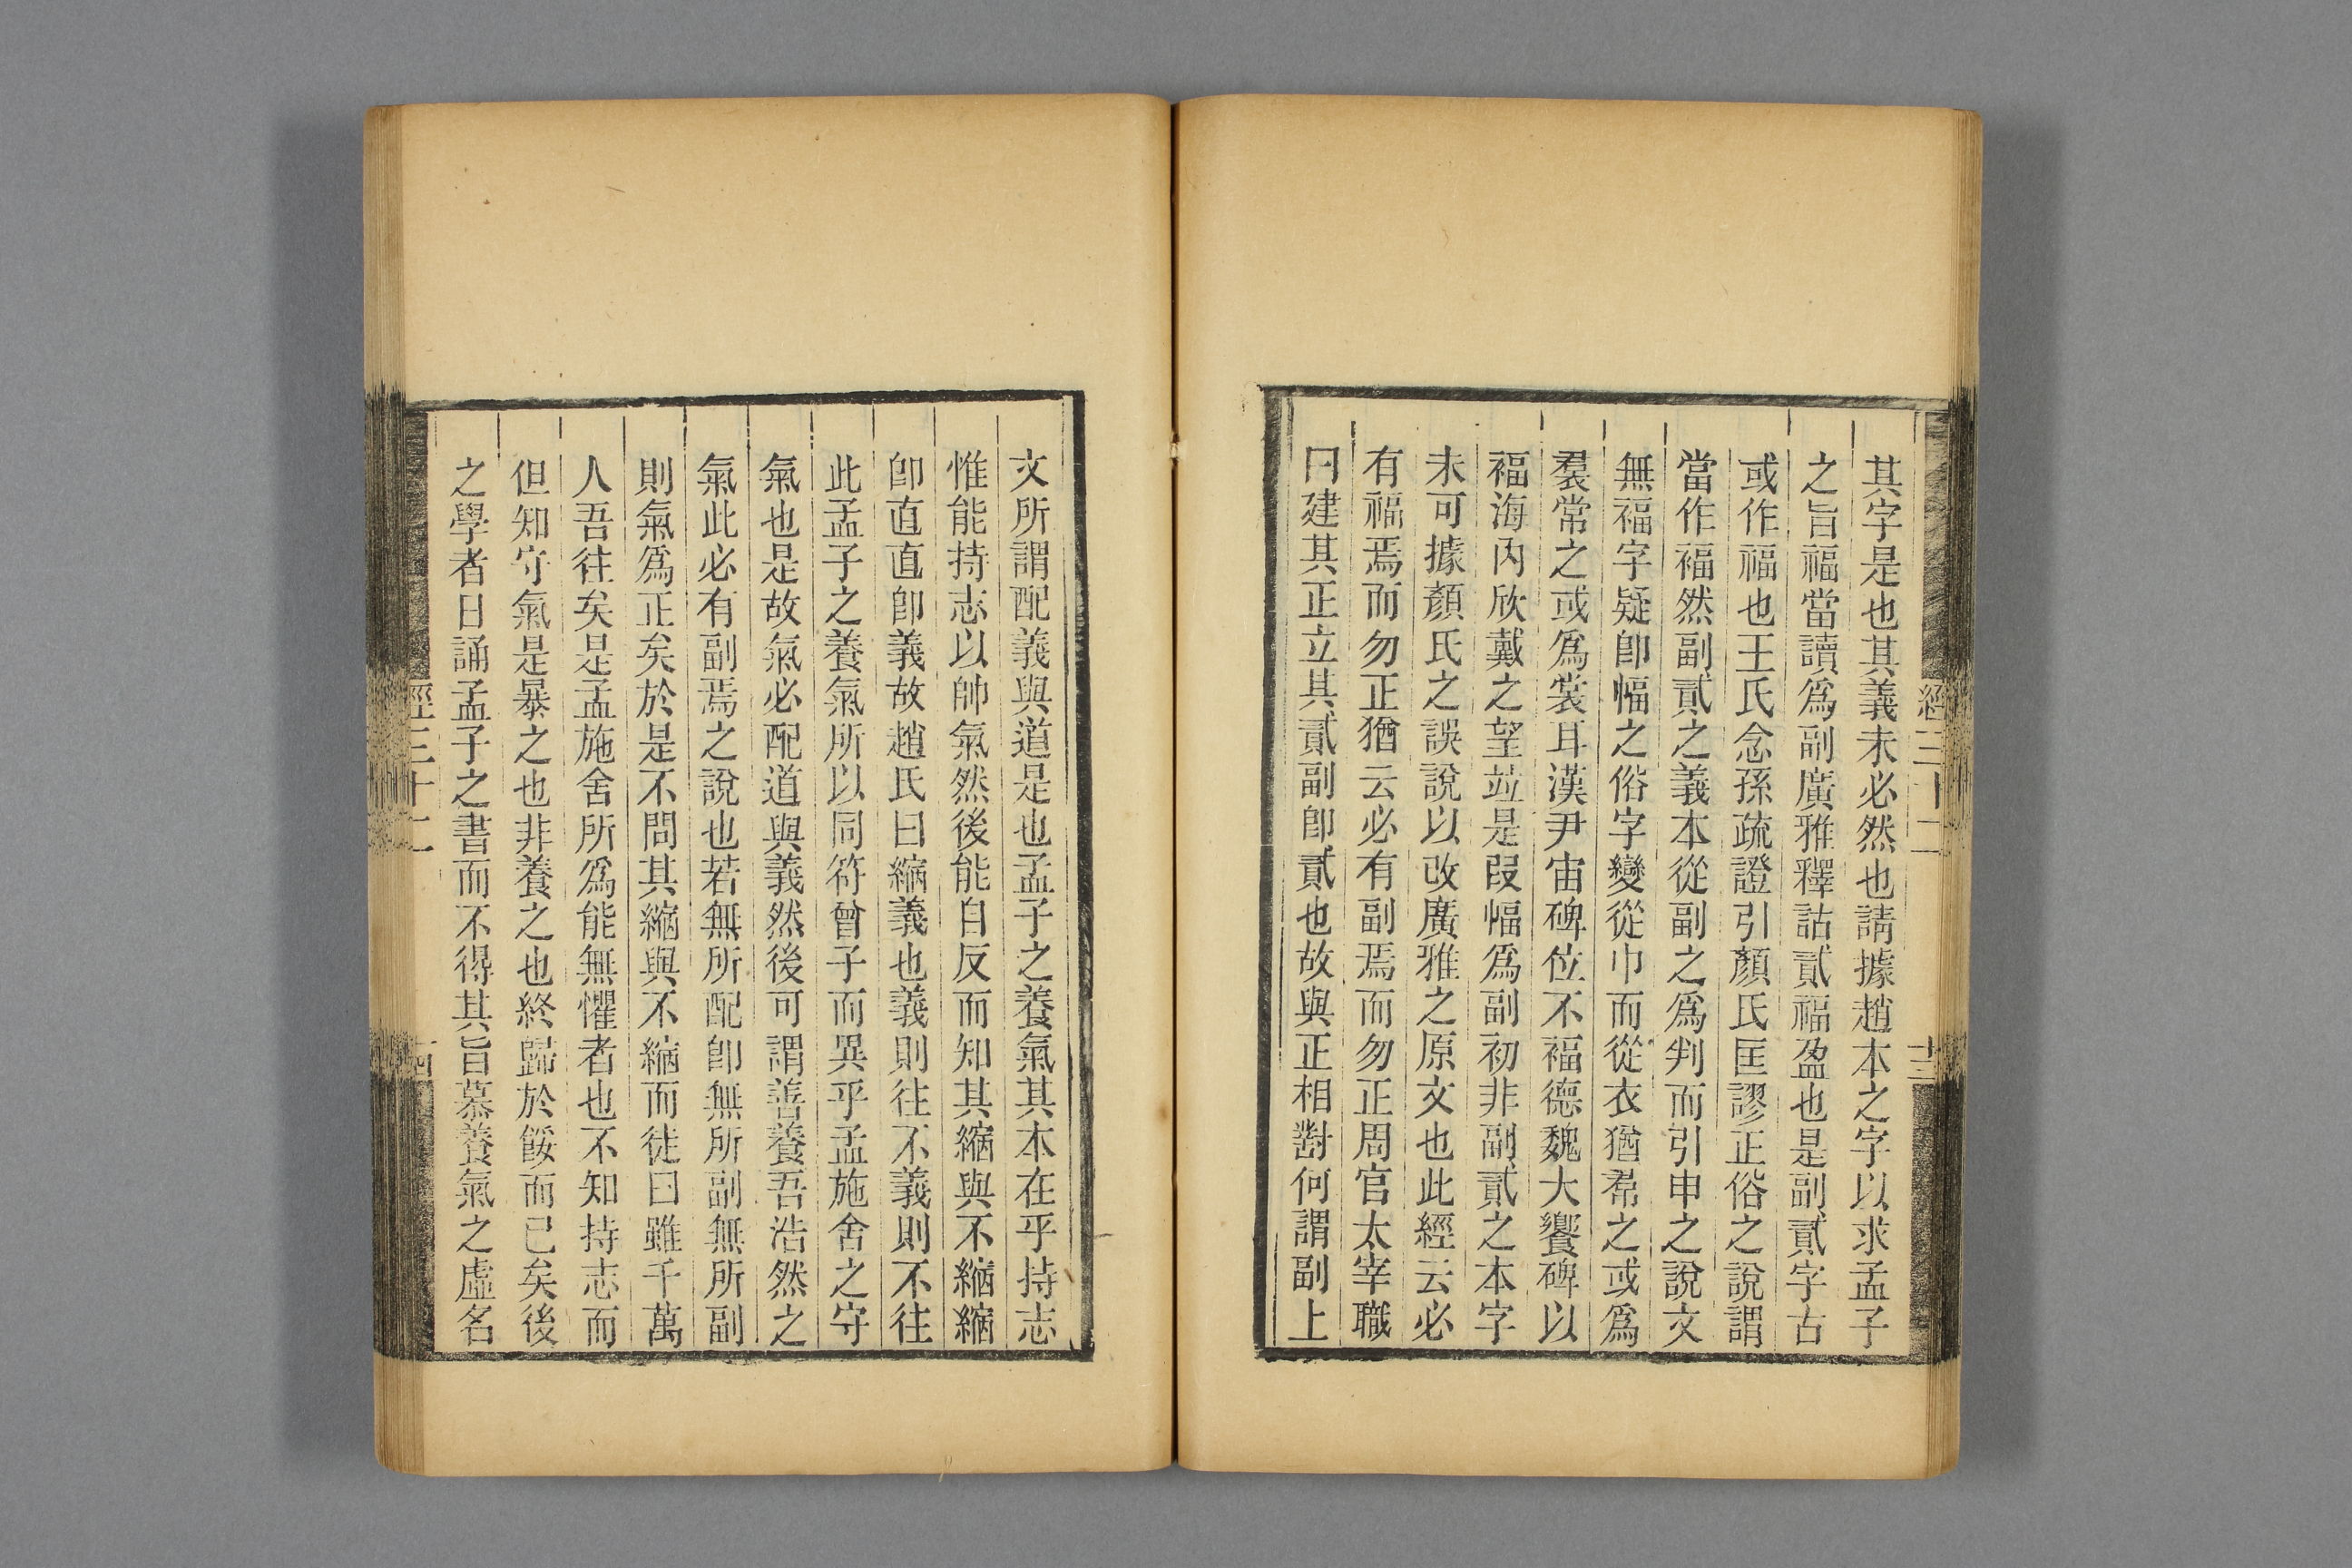 經三十二
十三
其字是也其義未必然也請據趙本之字以求孟子
之旨福當讀爲副廣雅釋詁貳福盈也是副貳字古
或作福也王氏念孫疏證引顏氏匡謬正俗之說謂
當作福然副貳之義本從副之爲判而引申之說文
無福字疑卽幅之俗字變從巾而從衣猶帬之或爲
裠常之或爲裳耳漢尹宙碑位不福德魏大饗碑以
福海內欣戴之望竝是叚幅爲副初非副貳之本字
未可據顏氏之誤說以改廣雅之原文也此經云必
有福焉而勿正猶云必有副焉而勿正周官太宰職
曰建其正立其貳副卽貳也故與正相對何謂副上
文所謂配義與道是也孟子之養氣其本在乎持志
惟能持志以帥氣然後能自反而知其縮與不縮縮
卽直直卽義故趙氏曰縮義也義則往不義則不往
此孟子之養氣所以同符曾子而異乎孟施舍之守
氣也是故氣必配道與義然後可謂善養吾浩然之
氣此必有副焉之說也若無所配卽無所副無所副
則氣爲正矣於是不問其縮與不縮而徒曰雖千萬
人吾往矣是孟施舍所爲能無懼者也不知持志而
但知守氣是暴之也非養之也終歸於餒而已矣後
之學者日誦孟子之書而不得其旨慕養氣之虛名
經三十二
十四